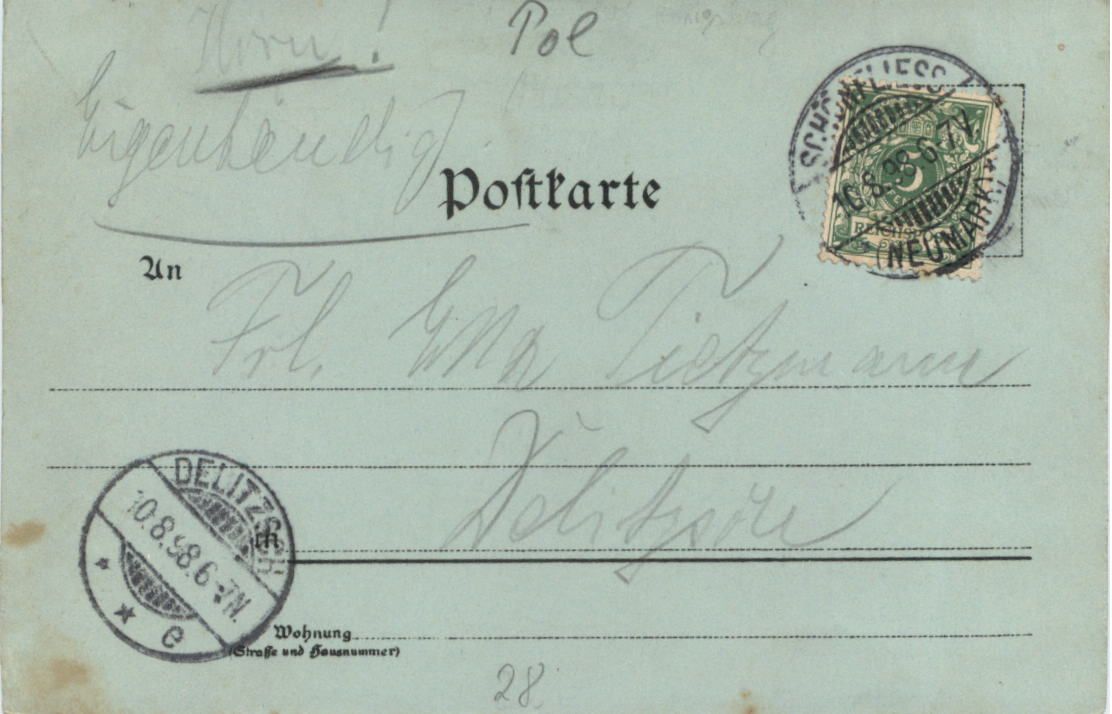 Pol
Eigenhändig
Postkarte
SCHÖNFLIESS
10.8.98.6-7V.
(NEUMARK)
5
REICHSPOST
An
Frl. Ella Tietzmann
Delitzsch
DELITZSCH
10.8.98.6-7N.
e
in
Wohnung
(Straße und Hausnummer)
28